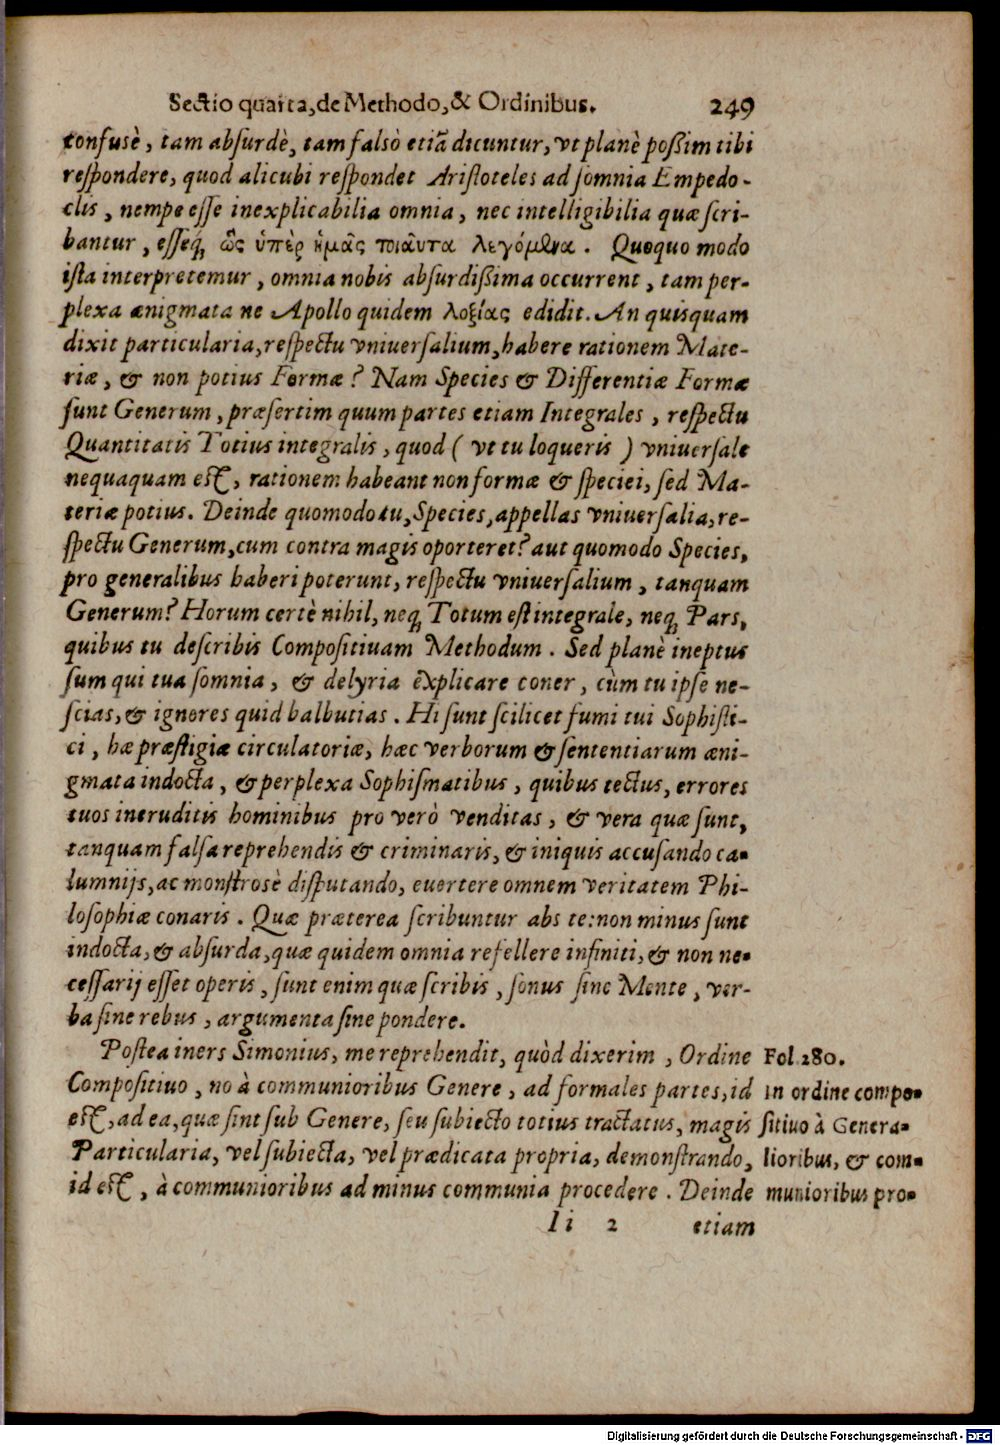 Sectio quarta, de Methodo, & Ordinibus. 249
confusè, tam absurdè, tam falsò etiã dicuntur, vt planè poßim tibi
respondere, quod alicubi respondet Aristoteles ad somnia Empedo-
clis, nempe esse inexplicabilia omnia, nec intelligibilia quæ scri-
bantur, esseq́; ὣς ὑπὲρ ἡμᾶς τοιαῦτα λεγόμενα. Quoquo modo
ista interpretemur, omnia nobis absurdißima occurrent, tam per-
plexa ænigmata ne Apollo quidem λοξίας edidit. An quisquam
dixit particularia, respectu vniuersalium, habere rationem Mate-
riæ, & non potius Formæ? Nam Species & Differentiæ Formæ
sunt Generum, præsertim quum partes etiam Integrales, respectu
Quantitatis Totius integralis, quod (vt tu loqueris) vniuersale
nequaquam est, rationem habeant non formæ & speciei, sed Ma-
teriæ potius. Deinde quomodo tu, Species, appellas vniuersalia, re-
spectu Generum, cum contra magis oporteret? aut quomodo Species,
pro generalibus haberi poterunt, respectu vniuersalium, tanquam
Generum? Horum certè nihil, neq; Totum est integrale, neq; Pars,
quibus tu describis Compositiuam Methodum. Sed planè ineptus
sum qui tua somnia, & delyria explicare coner, cùm tu ipse ne-
scias, & ignores quid balbutias. Hi sunt scilicet fumi tui Sophisti-
ci, hæ præstigiæ circulatoriæ, hæc verborum & sententiarum æni-
gmata indocta, & perplexa Sophismatibus, quibus tectus, errores
tuos ineruditis hominibus pro verò venditas, & vera quæ sunt,
tanquam falsa reprehendis & criminaris, & iniquis accusando ca-
lumnijs, ac monstrosè disputando, euertere omnem veritatem Phi-
losophiæ conaris. Quæ præterea scribuntur abs te: non minus sunt
indocta, & absurda, quæ quidem omnia refellere infiniti, & non ne-
cessarij esset operis, sunt enim quæ scribis, sonus sine Mente, ver-
ba sine rebus, argumenta sine pondere.
Postea iners Simonius, me reprehendit, quòd dixerim, Ordine
Compositiuo, no à communioribus Genere, ad formales partes, id
est, ad ea, quæ sint sub Genere, seu subiecto totius tractatus, magis
Particularia, vel subiecta, vel prædicata propria, demonstrando,
id est, à communioribus ad minus communia procedere. Deinde
Fol. 280.
In ordine compo-
sitiuo à Genera-
lioribus, & com-
munioribus pro-
Ii 2 etiam
Digitalisierung gefördert durch die Deutsche Forschungsgemeinschaft - DFG